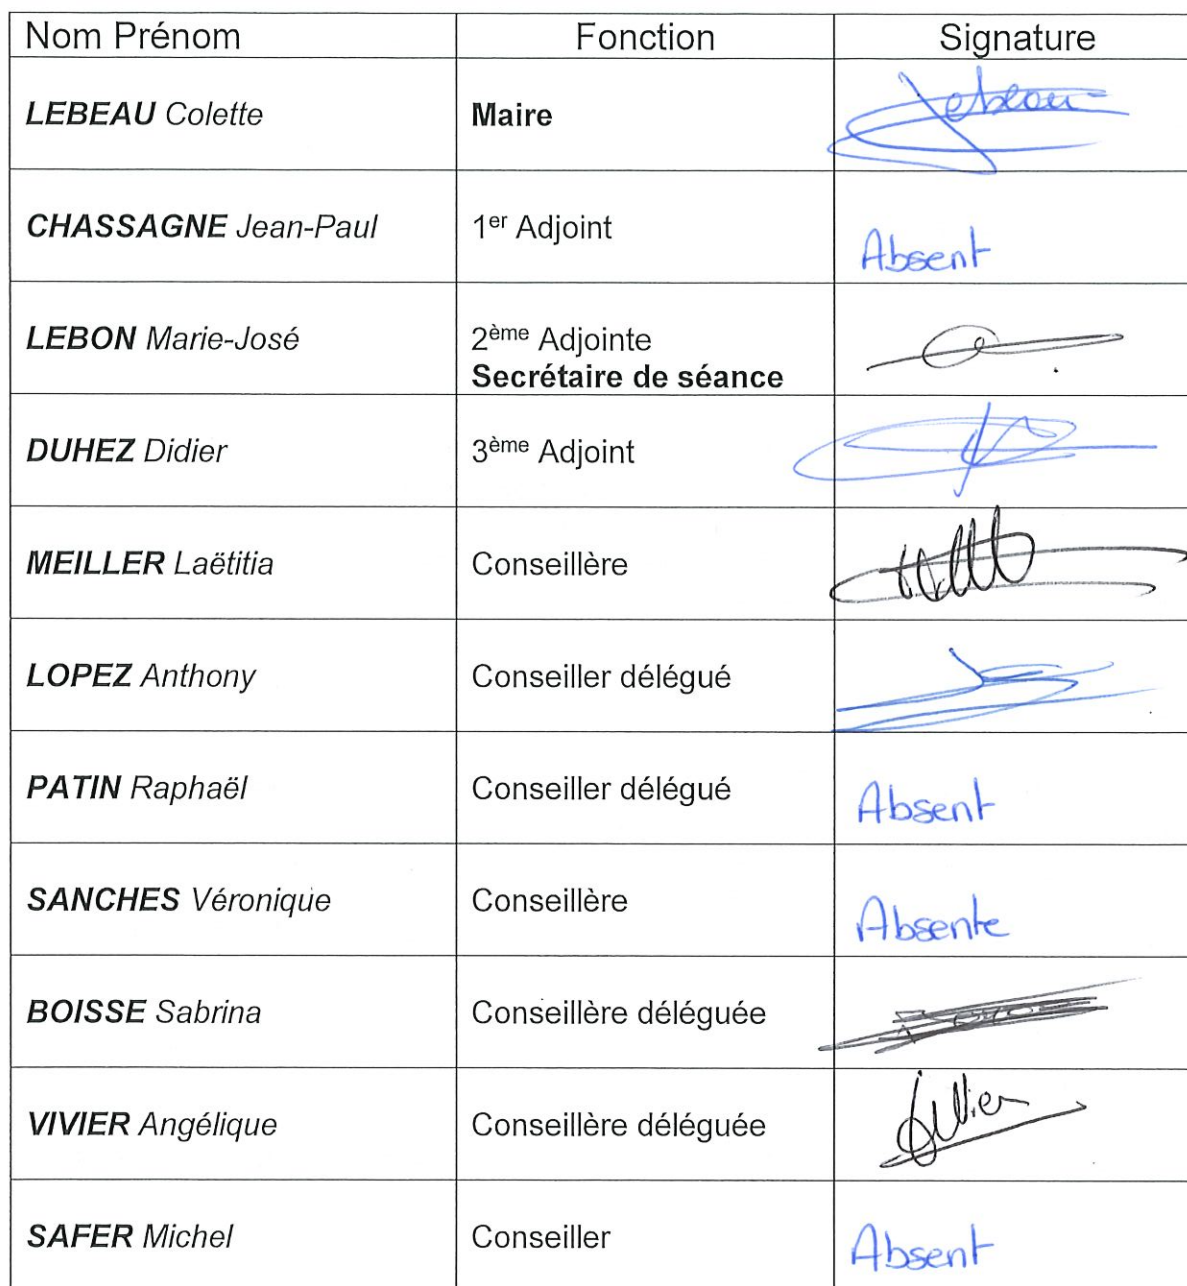 Nom Prénom Fonction Signature
LEBEAU Colette Maire Lebeau
CHASSAGNE Jean-Paul 1er Adjoint Absent
LEBON Marie-José 2ème Adjointe
Secrétaire de séance
DUHEZ Didier 3ème Adjoint
MEILLER Laëtitia Conseillère
LOPEZ Anthony Conseiller délégué
PATIN Raphaël Conseiller délégué Absent
SANCHES Véronique Conseillère Absente
BOISSE Sabrina Conseillère déléguée
VIVIER Angélique Conseillère déléguée
SAFER Michel Conseiller Absent